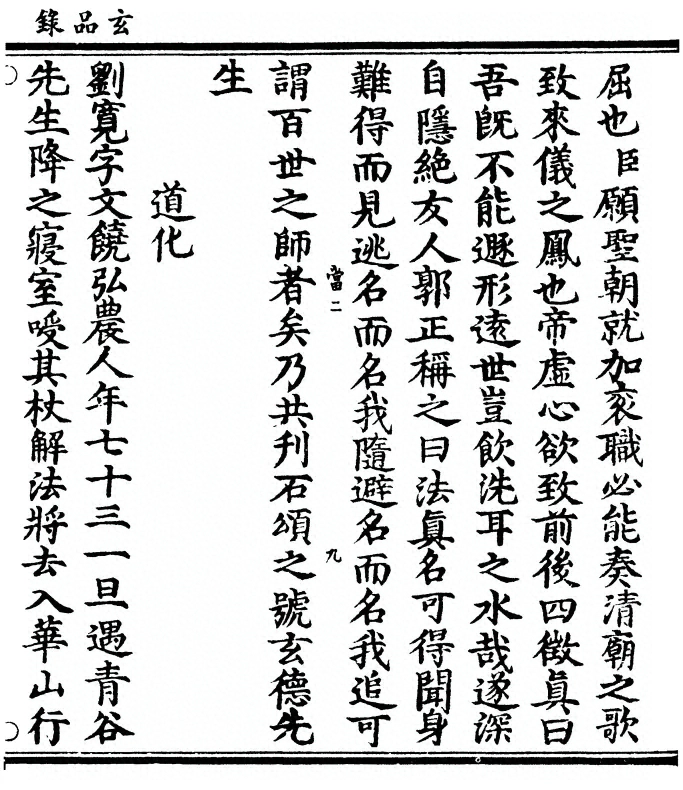 玄品錄
屈也臣願聖朝就加衮職必能奏清廟之歌
致來儀之鳳也帝虛心欲致前後四徵眞曰
吾旣不能遯形遠世豈飲洗耳之水哉遂深
自隱絶友人郭正稱之曰法眞名可得聞身
難得而見逃名而名我隨避名而名我追可
當二
九
謂百世之師者矣乃共刋石頌之號玄德先
生
道化
劉寬字文饒弘農人年七十三一旦遇青谷
先生降之寢室唆其杖解法將去入華山行